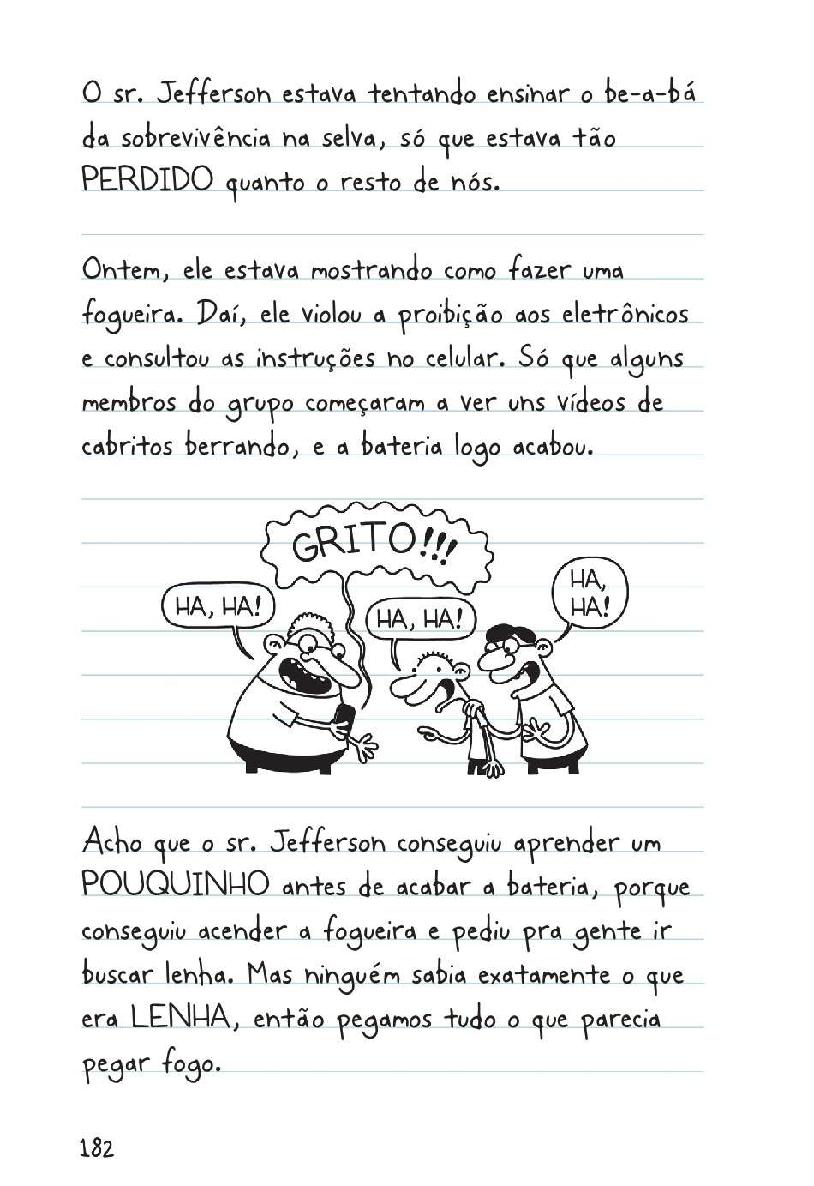 O sr. Jefferson estava tentando ensinar o be-a-bá
da sobrevivência na selva, só que estava tão
PERDIDO quanto o resto de nós.
Ontem, ele estava mostrando como fazer uma
fogueira. Daí, ele violou a proibição aos eletrônicos
e consultou as instruções no celular. Só que alguns
membros do grupo começaram a ver uns vídeos de
cabritos berrando, e a bateria logo acabou.
GRITO!!!
HA, HA!
HA, HA!
HA,
HA!
Acho que o sr. Jefferson conseguiu aprender um
POUQUINHO antes de acabar a bateria, porque
conseguiu acender a fogueira e pediu pra gente ir
buscar lenha. Mas ninguém sabia exatamente o que
era LENHA, então pegamos tudo o que parecia
pegar fogo.
182